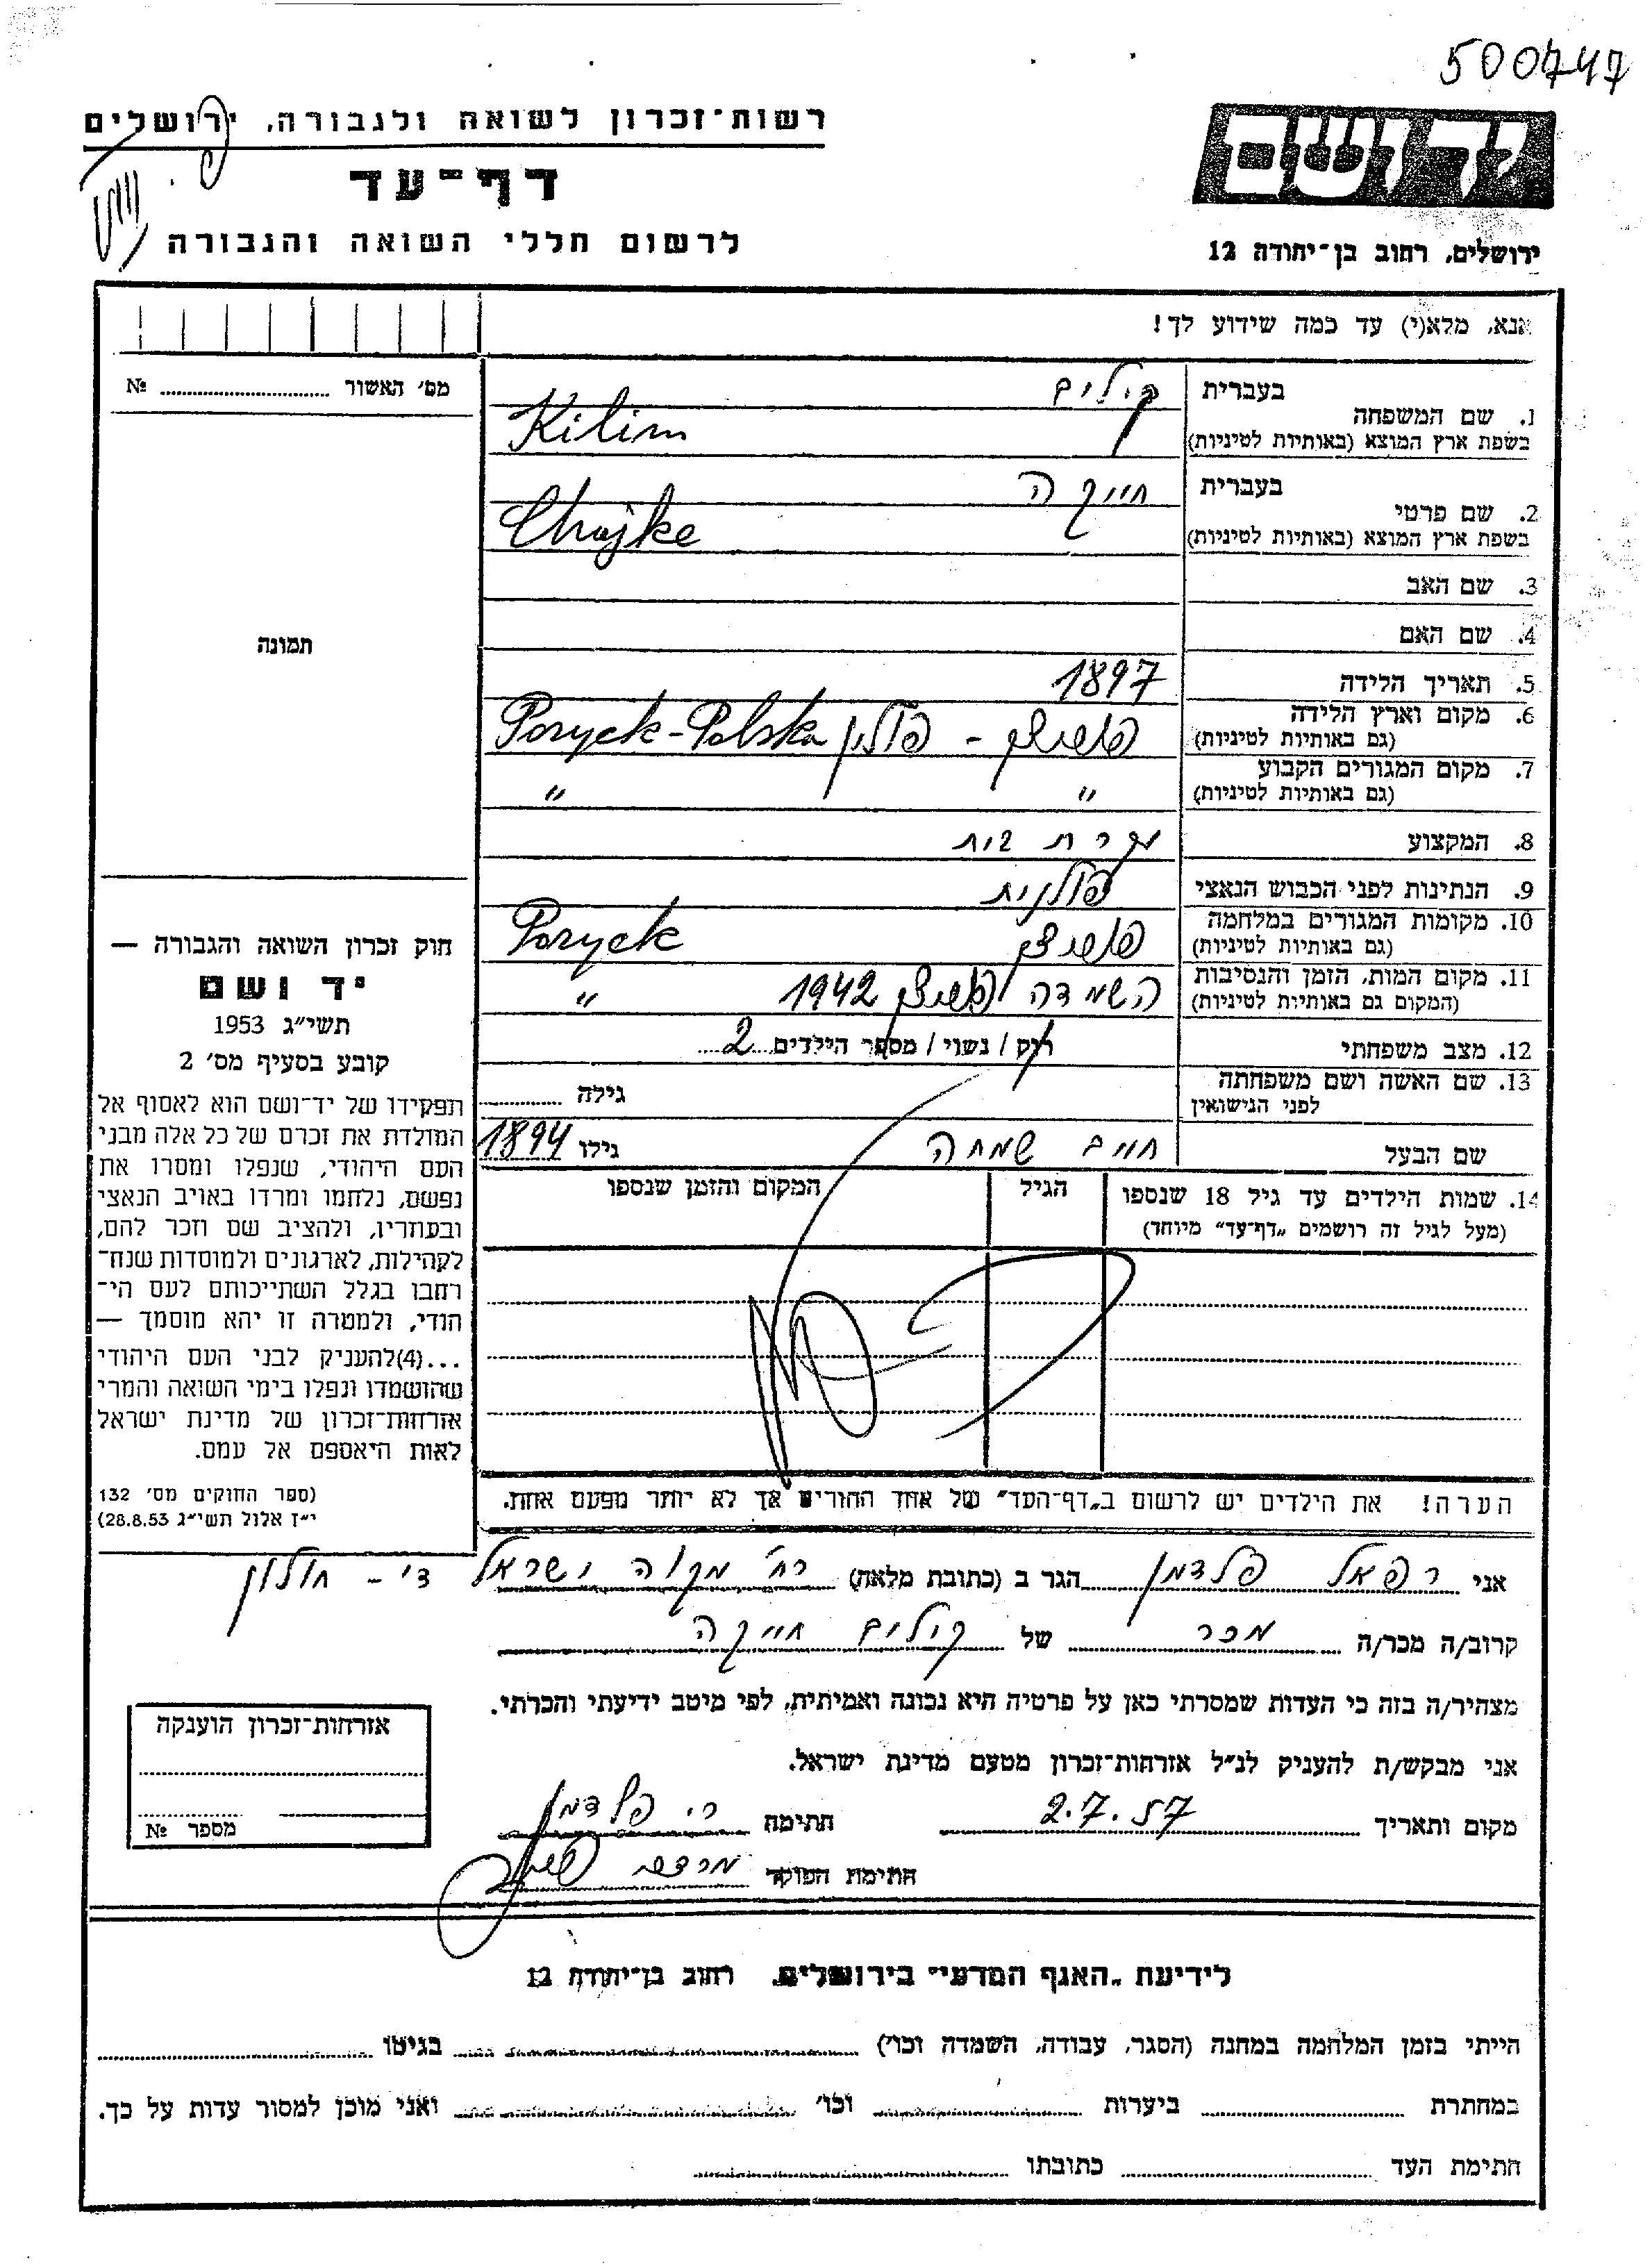 500747
רשות־זכרון לשואה ולגבורה, ירושלים
דף־עד
לרשום חללי השואה והגבורה
יד ושם
ירושלים, רחוב בן־יהודה 12
אנא, מלא(י) עד כמה שידוע לך!
מס׳ האשור № ........
בעברית קילים
1. שם המשפחה
בשפת ארץ המוצא (באותיות לטיניות) Kilim
בעברית חייקה
2. שם פרטי
בשפת ארץ המוצא (באותיות לטיניות) Chajke
3. שם האב
4. שם האם
תמונה
5. תאריך הלידה 1897
6. מקום וארץ הלידה
(גם באותיות לטיניות) פוריצק - פולין Poryck-Polska
7. מקום המגורים הקבוע
(גם באותיות לטיניות) " "
8. המקצוע עקרת בית
9. הנתינות לפני הכבוש הנאצי פולנית
10. מקומות המגורים במלחמה
(גם באותיות לטיניות) פוריצק Poryck
11. מקום המות, הזמן והנסיבות
(המקום גם באותיות לטיניות) השמדה פוריצק 1942 "
12. מצב משפחתי רוק / נשוי / מספר הילדים 2
13. שם האשה ושם משפחתה
לפני הנישואין גילה ........
שם הבעל חיים שמחה גילו 1894
14. שמות הילדים עד גיל 18 שנספו הגיל המקום והזמן שנספו
(מעל לגיל זה רושמים „דף־עד" מיוחד)
הערה! את הילדים יש לרשום ב„דף־העד" של אחד ההורים אך לא יותר מפעם אחת.
חוק זכרון השואה והגבורה —
יד ושם
תשי״ג 1953
קובע בסעיף מס׳ 2
תפקידו של יד־ושם הוא לאסוף אל
המולדת את זכרם של כל אלה מבני
העם היהודי, שנפלו ומסרו את
נפשם, נלחמו ומרדו באויב הנאצי
ובעוזריו, ולהציב שם וזכר להם,
לקהילות, לארגונים ולמוסדות שנח־
רבו בגלל השתייכותם לעם הי־
הודי, ולמטרה זו יהא מוסמך —
...(4)להעניק לבני העם היהודי
שהושמדו ונפלו בימי השואה והמרי
אזרחות־זכרון של מדינת ישראל
לאות היאספם אל עמם.
(ספר החוקים מס׳ 132
י״ז אלול תשי״ג 28.8.53)
אני רפאל פלדמן הגר ב (כתובת מלאה) רח׳ מקוה ישראל - חולון
קרוב/ה מכר/ה מכר של קילים חייקה
מצהיר/ה בזה כי העדות שמסרתי כאן על פרטיה היא נכונה ואמיתית, לפי מיטב ידיעתי והכרתי.
אני מבקש/ת להעניק לנ״ל אזרחות־זכרון מטעם מדינת ישראל.
מקום ותאריך 2.7.57 חתימה ר׳ פלדמן
חתימת הפוקד
אזרחות־זכרון הוענקה
מספר №
לידיעת „האגף המדעי" בירושלים, רחוב בן־יהודה 12
הייתי בזמן המלחמה במחנה (הסגר, עבודה, השמדה וכו׳) ........ בגיטו ........
במחתרת ........ ביערות ........ וכו׳ ........ ואני מוכן למסור עדות על כך.
חתימת העד ........ כתובתו ........